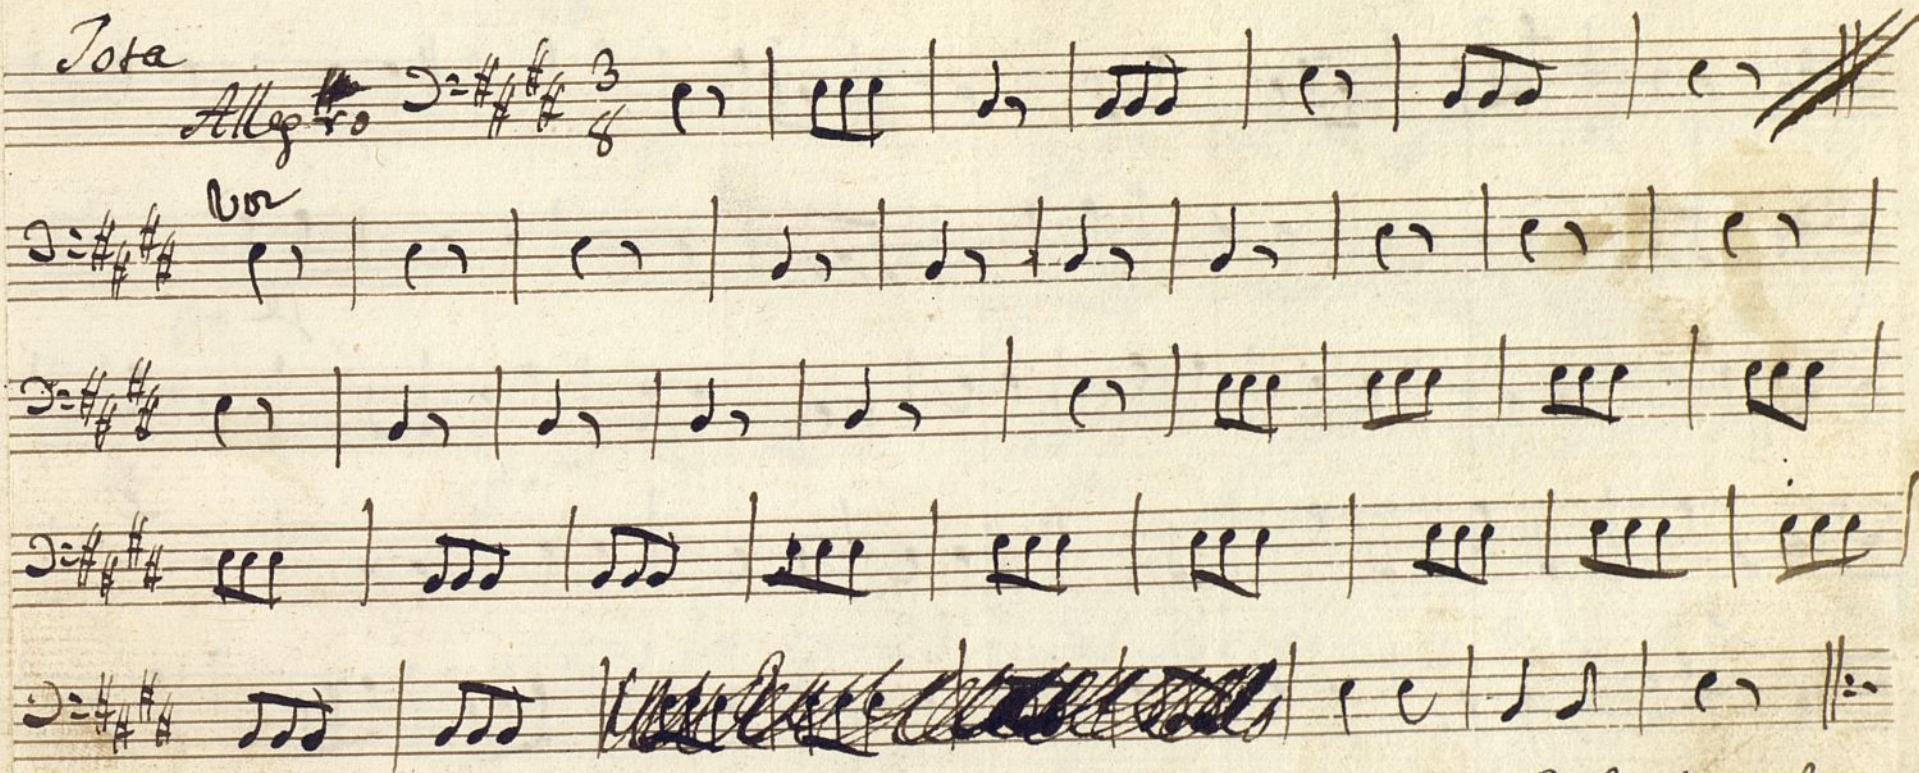 Jota
Allegro
3
8
Voz